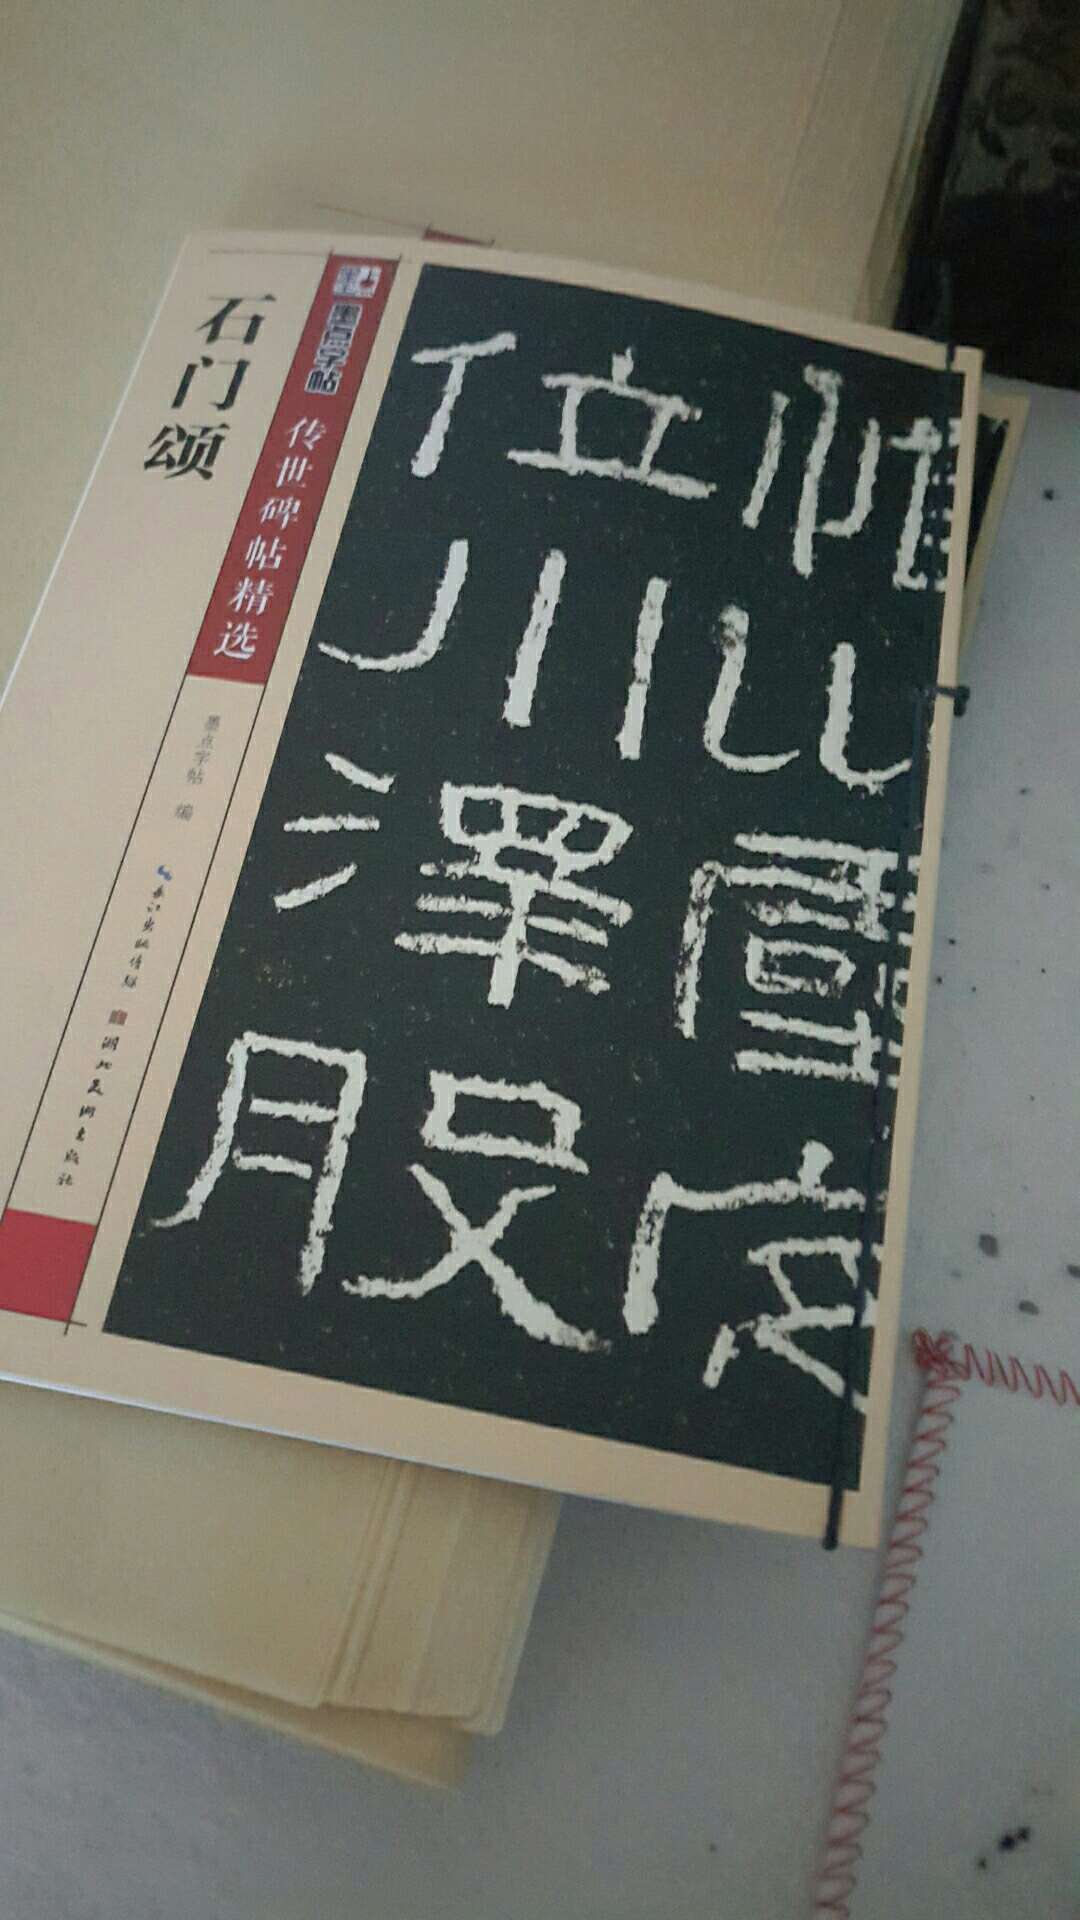 石门颂
墨点字帖
传世碑帖精选
墨点字帖 编
长江出版传媒 湖北美术出版社
惟坤靈定
位川澤股